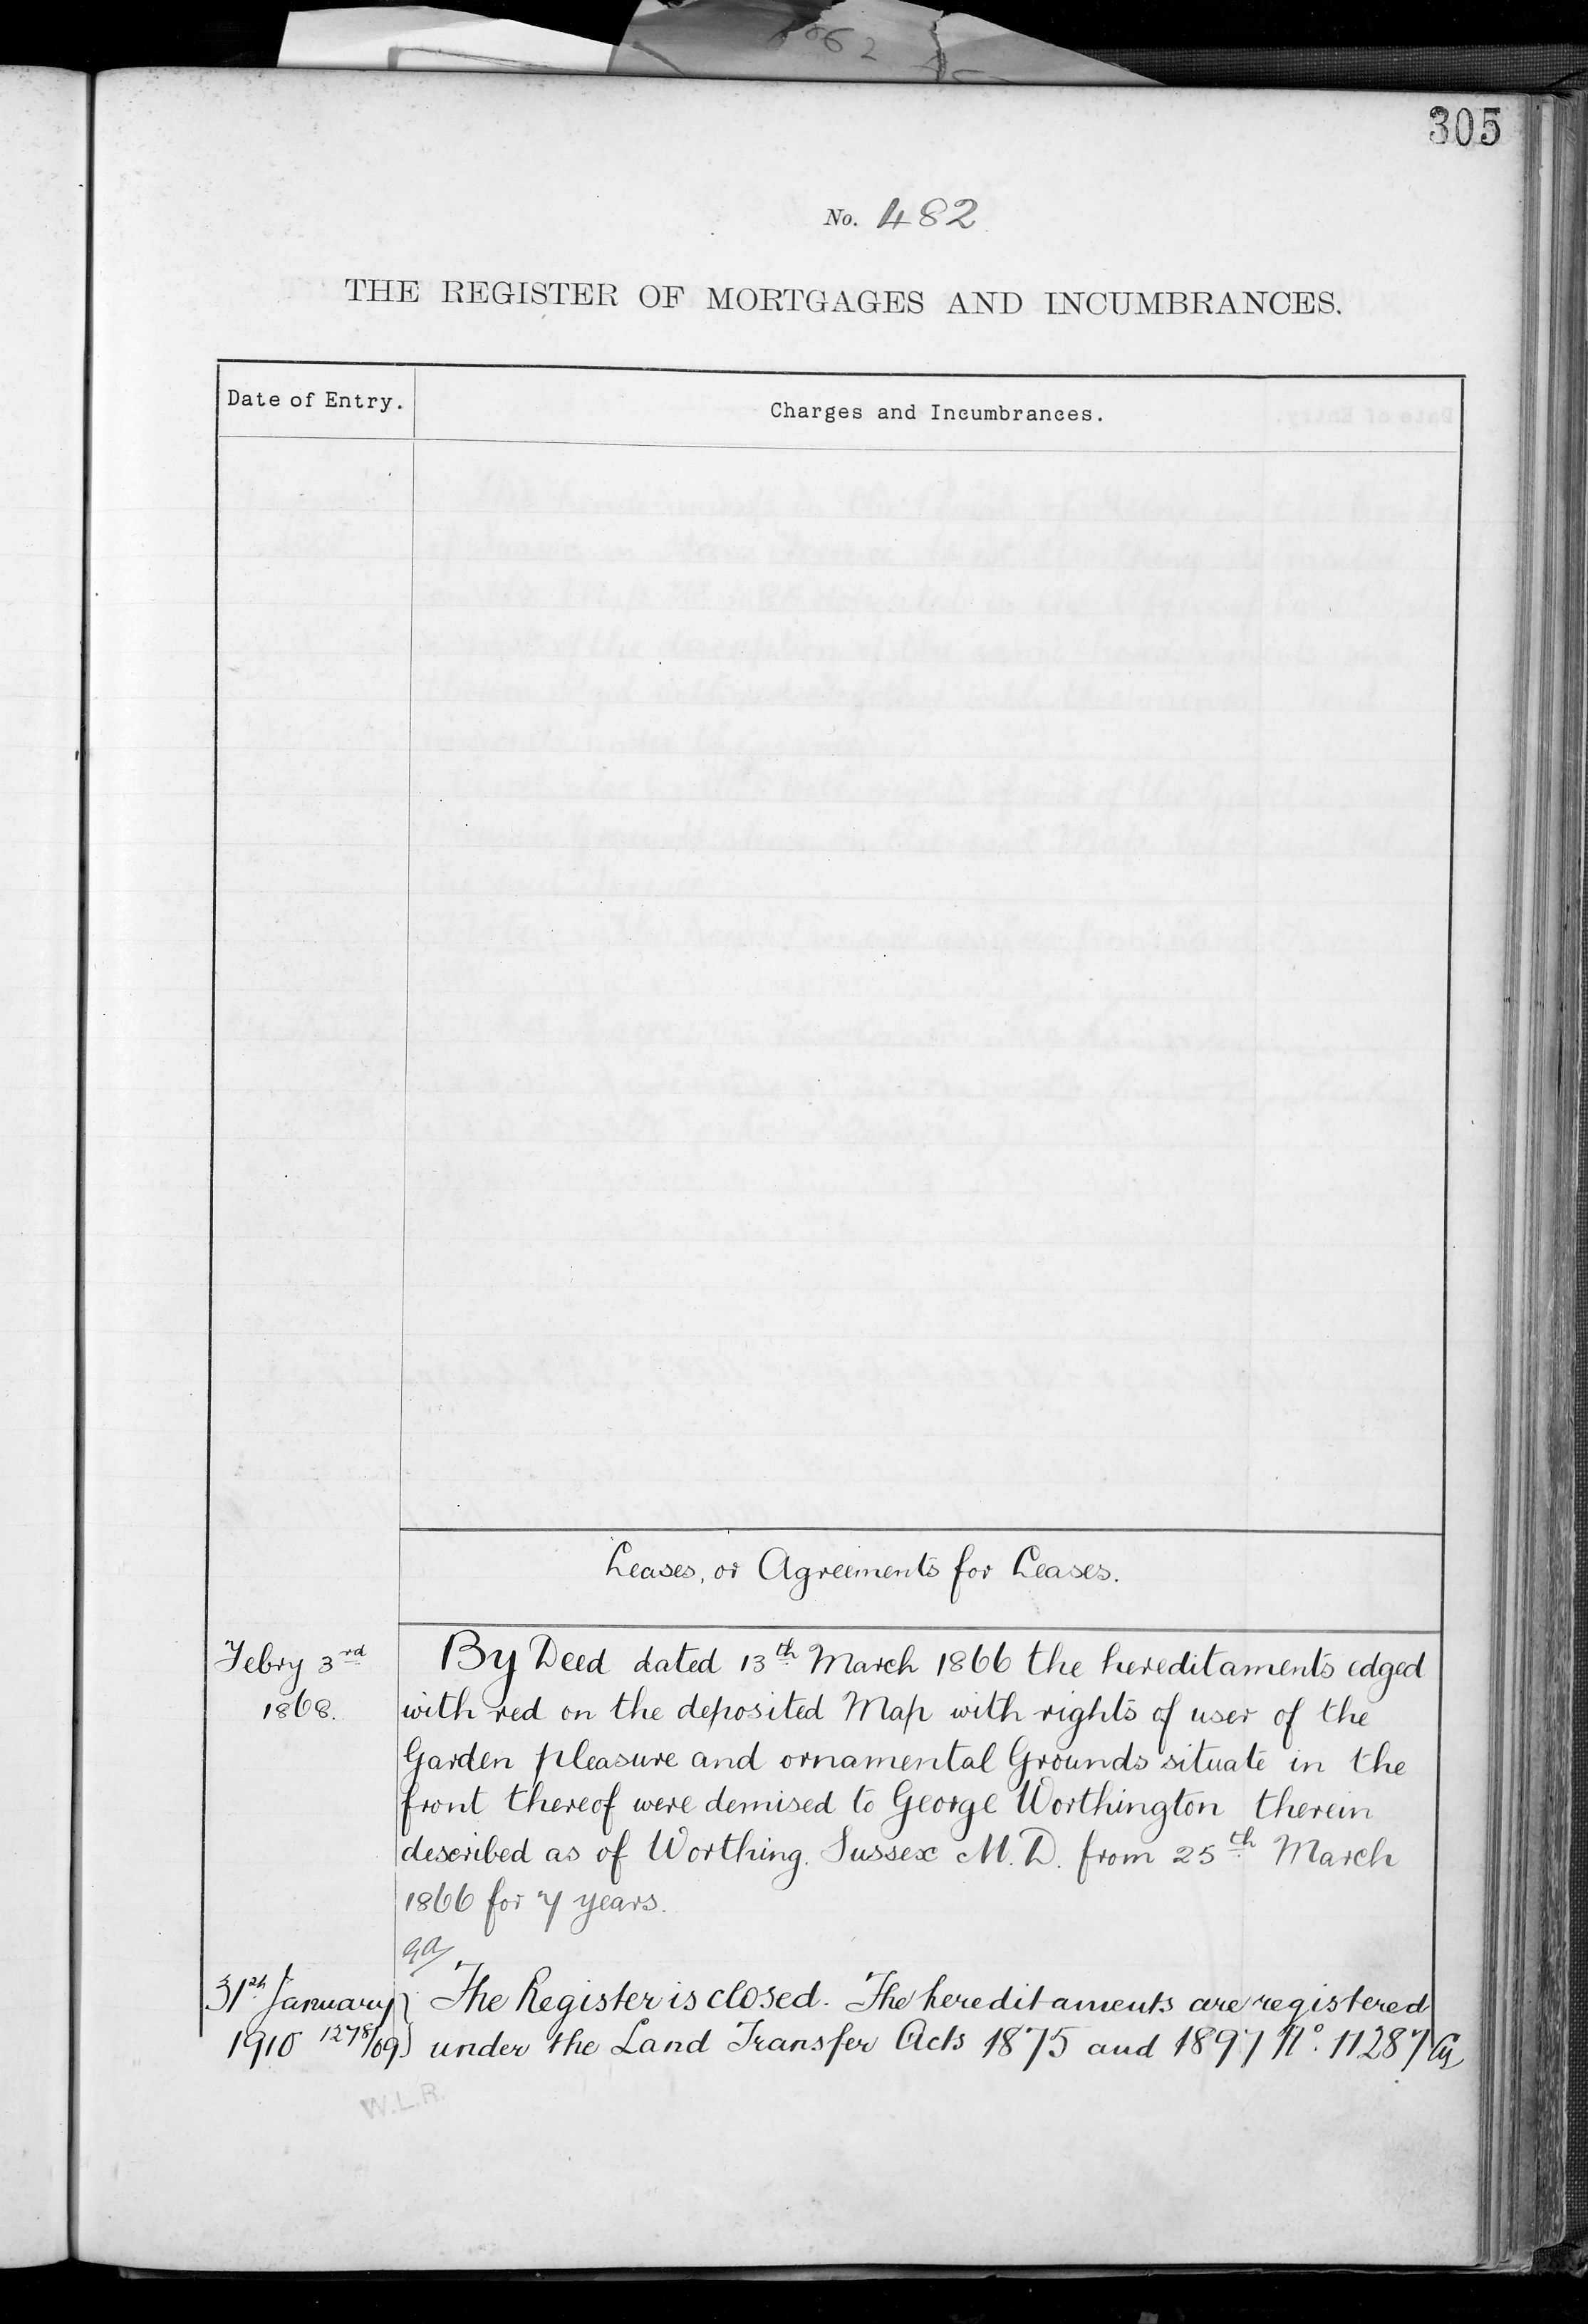 305
No. 482
THE REGISTER OF MORTGAGES AND INCUMBRANCES.
Date of Entry.
Charges and Incumbrances.
Leases, or Agreements for Leases.
Febry 3rd
1868.
By Deed dated 13th March 1866 the hereditaments edged
with red on the deposited Map with rights of user of the
Garden pleasure and ornamental Grounds situate in the
front thereof were demised to George Worthington therein
described as of Worthing. Sussex M.D. from 25th March
1866 for 7 years.
31st January
1910 1278/09
The Register is closed. The hereditaments are registered
under the Land Transfer Acts 1875 and 1897 No. 11287
W.L.R.